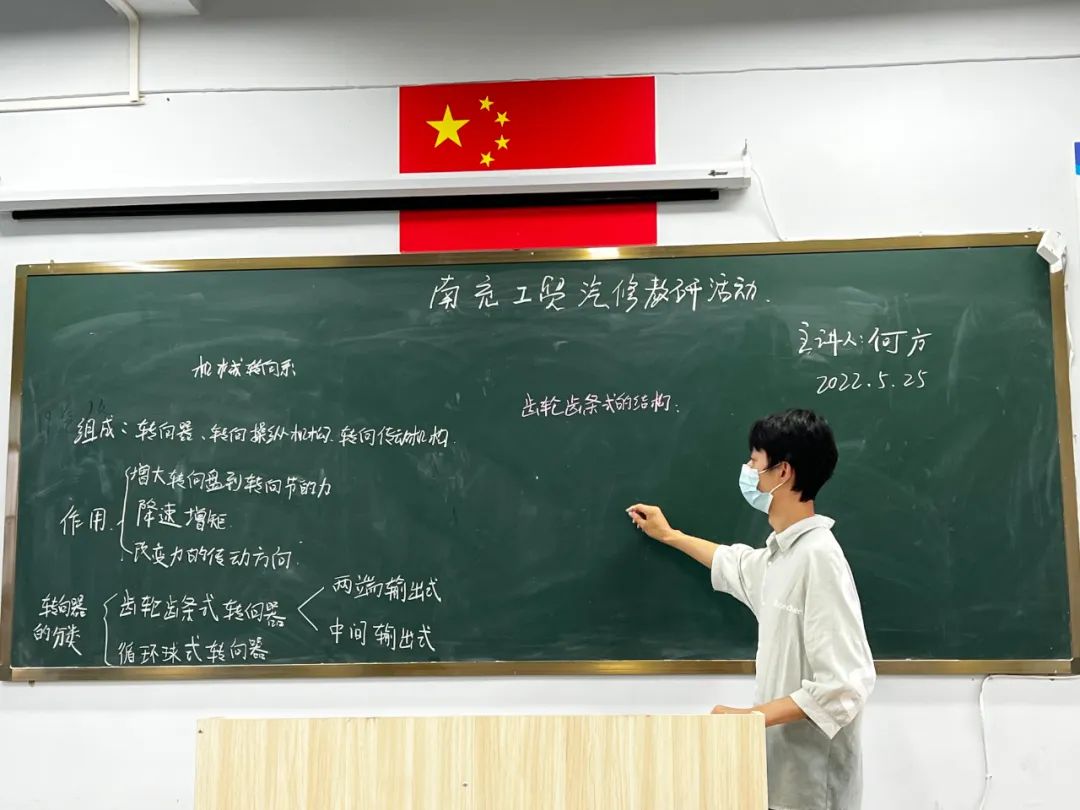 南充工贸汽修教研活动.
主讲人:何方
2022.5.25
机械转向系
组成:转向器、转向操纵机构、转向传动机构.
作用.
增大转向盘到转向节的力
降速增矩.
改变力的传动方向.
转向器的分类
齿轮齿条式转向器
两端输出式
中间输出式
循环球式转向器
齿轮齿条式的结构: